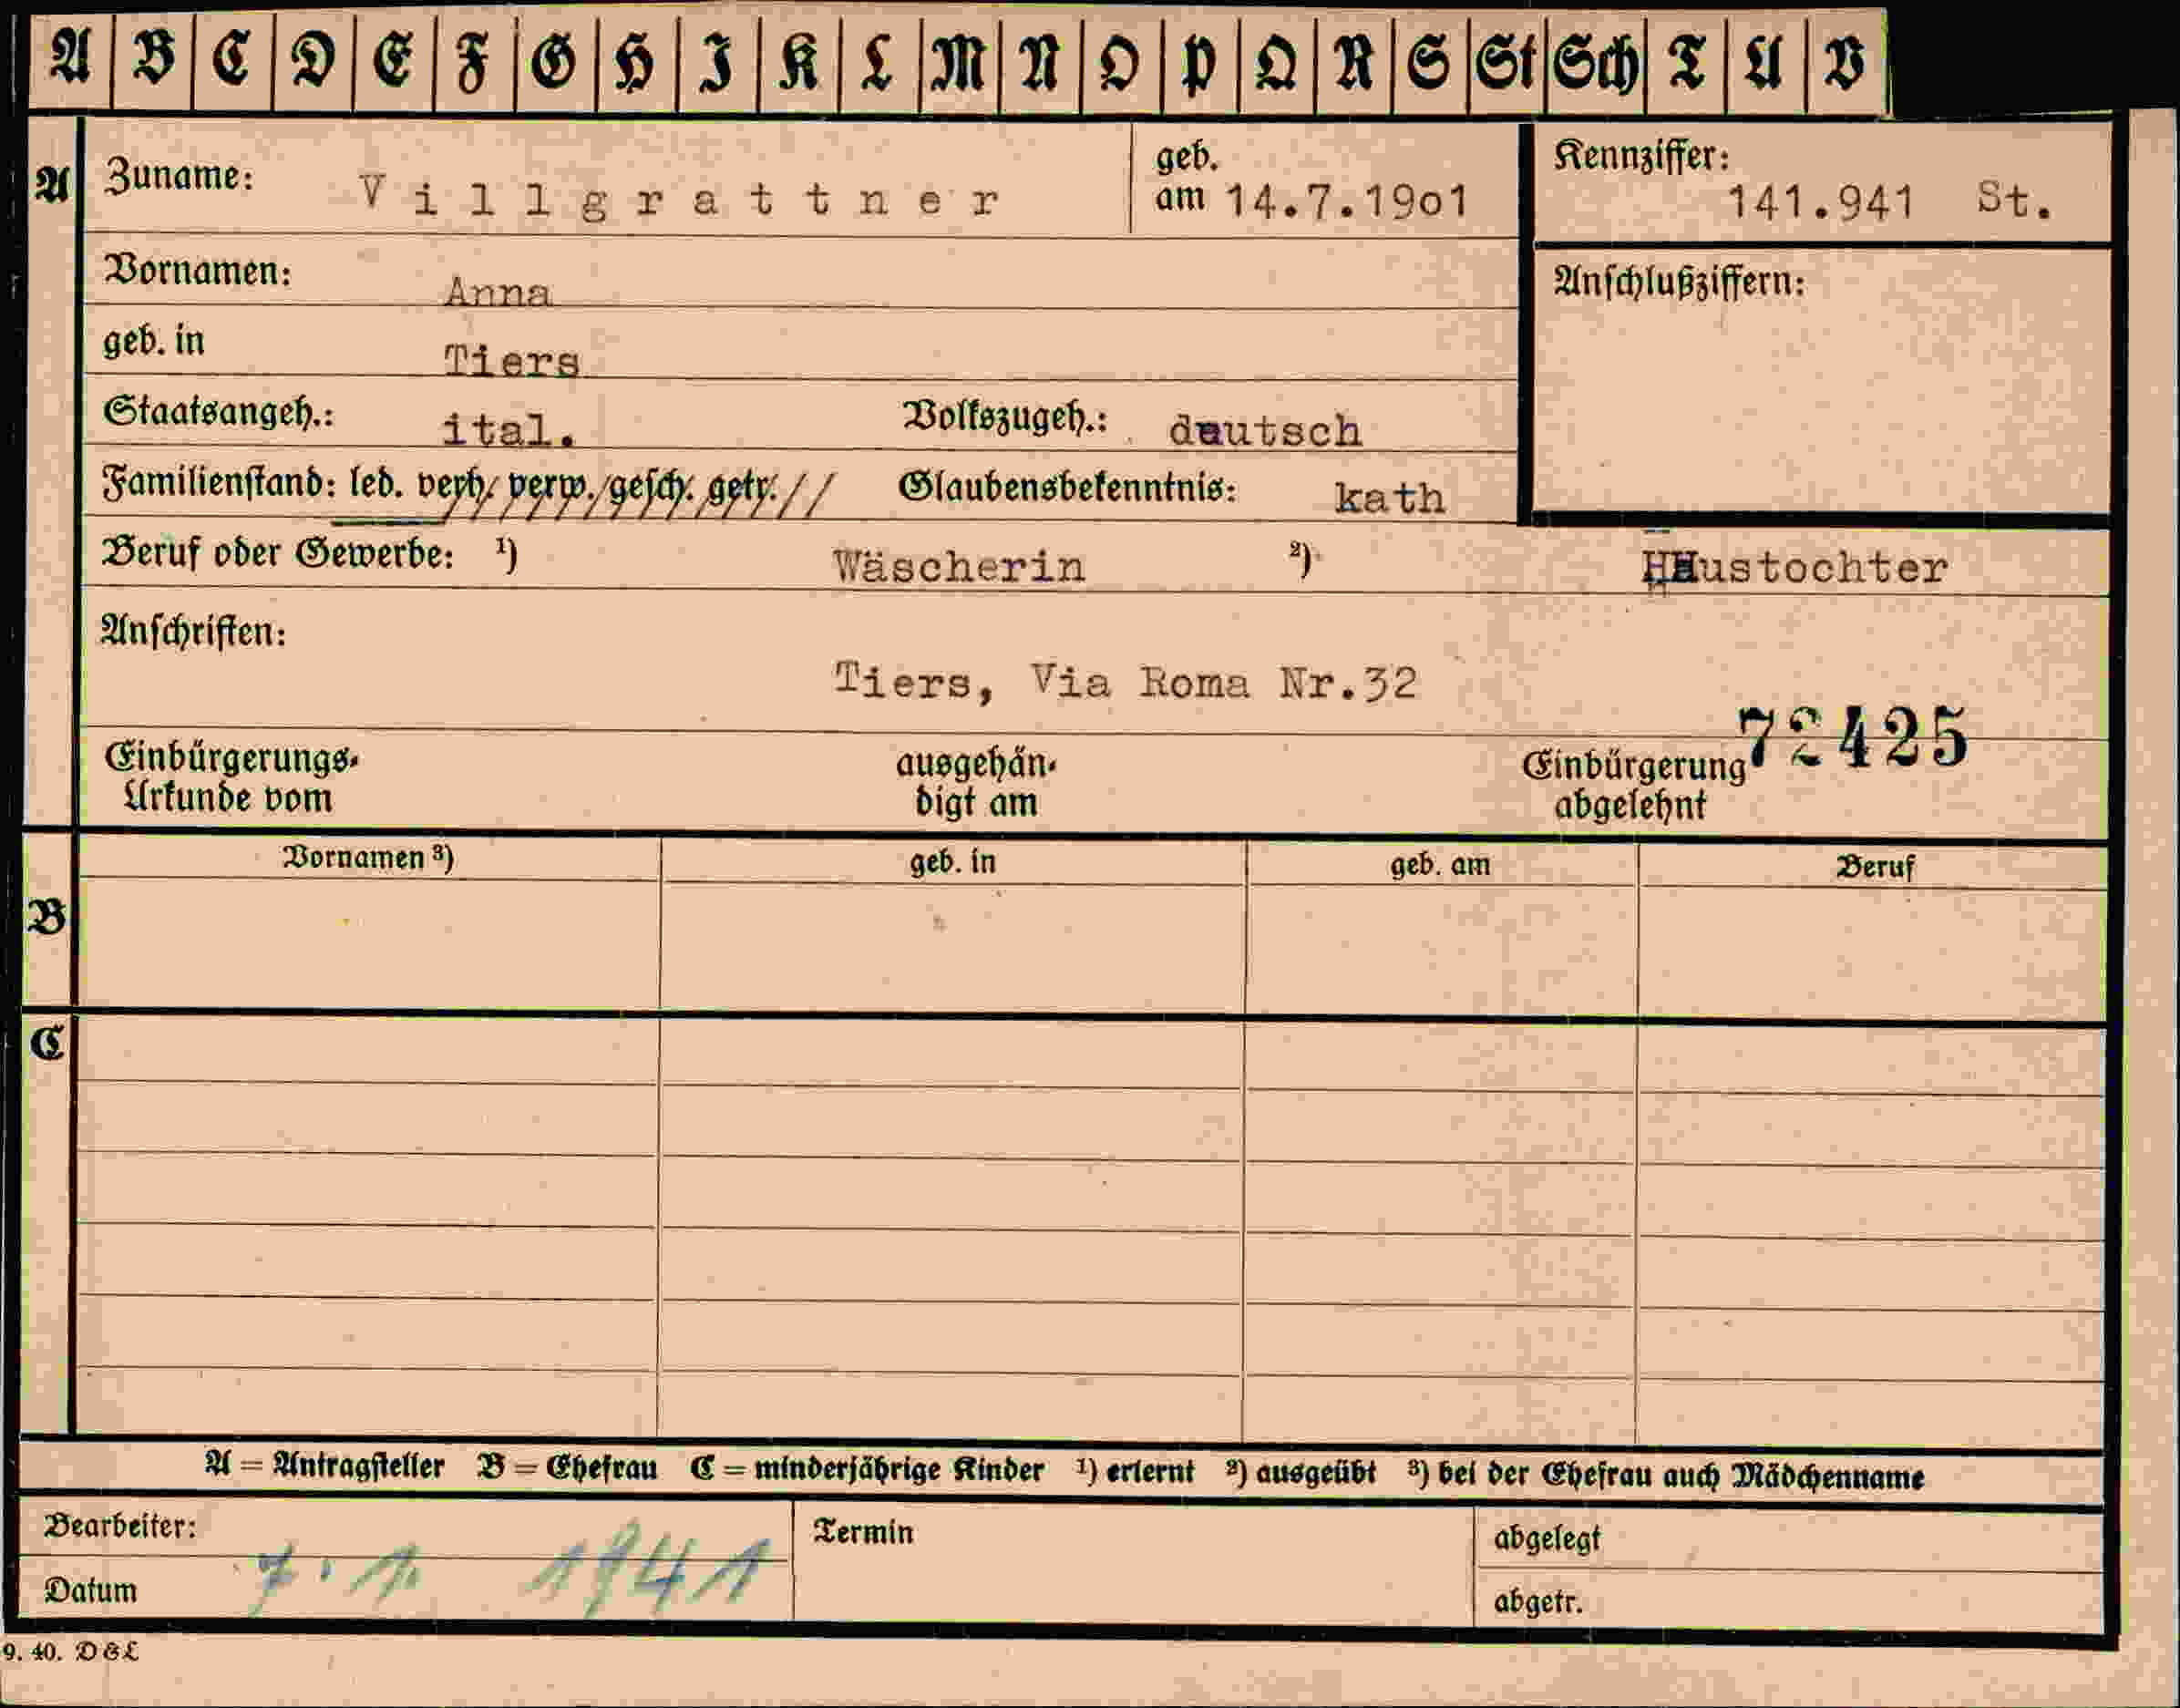 A B C D E F G H I K L M N O P Q R S St Sch T U V
A Zuname: Villgrattner geb. am 14.7.1901 Kennziffer: 141.941 St.
Vornamen: Anna Anschlußziffern:
geb. in Tiers
Staatsangeh.: ital. Volkszugeh.: deutsch
Familienstand: led. verh. verw. gesch. getr. Glaubensbekenntnis: kath
Beruf oder Gewerbe: ¹) Wäscherin ²) Haustochter
Anschriften:
Tiers, Via Roma Nr.32
72425
Einbürgerungs- ausgehän- Einbürgerung
Urkunde vom digt am abgelehnt
Vornamen ³) geb. in geb. am Beruf
B
C
A = Antragsteller B = Ehefrau C = minderjährige Kinder ¹) erlernt ²) ausgeübt ³) bei der Ehefrau auch Mädchenname
Bearbeiter: Termin abgelegt
Datum 7. 1. 1941 abgetr.
9. 40. D & L